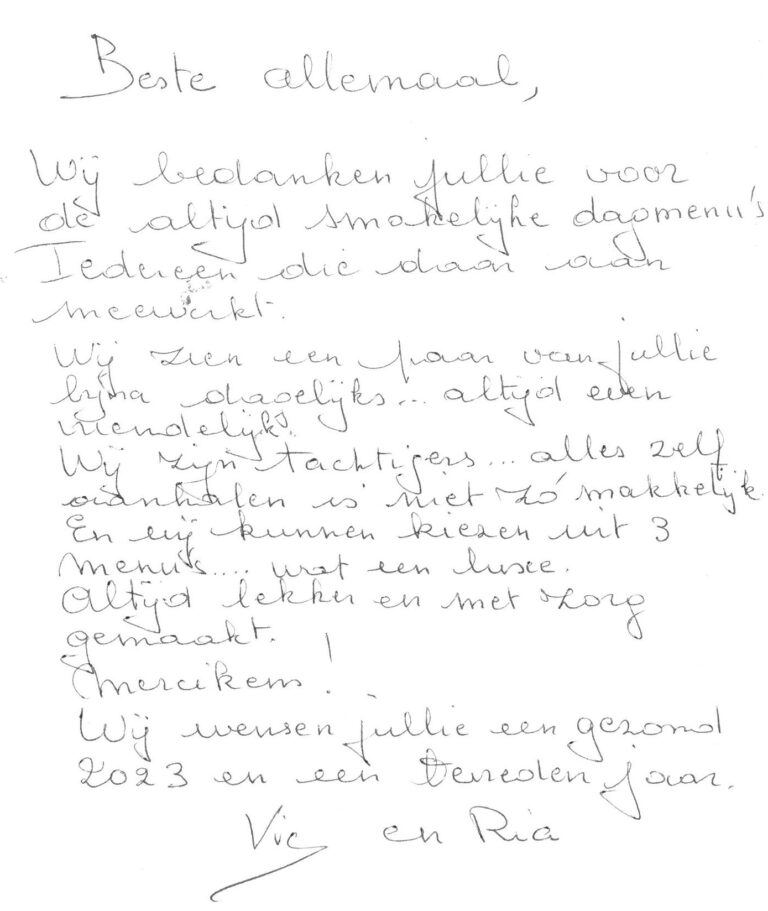 Beste allemaal,
Wij bedanken jullie voor
de altijd smakelijke dagmenu's
Iedereen die daar aan
meewerkt.
Wij zien een paar van jullie
bijna dagelijks... altijd even
vriendelijk!
Wij zijn tachtigers... alles zelf
aanhalen is niet zó makkelijk.
En wij kunnen kiezen uit 3
menu's.... wat een luxe.
Altijd lekker en met zorg
gemaakt.
Mercikens!
Wij wensen jullie een gezond
2023 en een tevreden jaar.
Vic en Ria